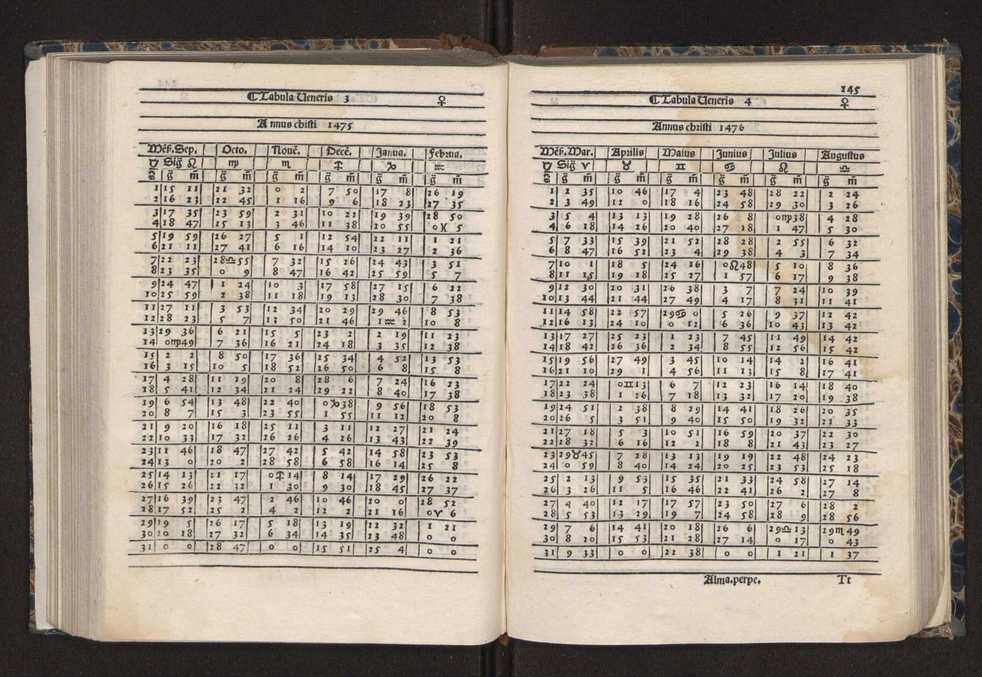 ¶ Tabula Veneris 3 ♀
Annus christi 1475
Mẽs. Sep. Octo. Nouẽ. Decẽ. Janua. Februa.
☿ Sig̃ ♌ ♍ ♏ ♐ ♑ ♒
g̃ m̃ g̃ m̃ g̃ m̃ g̃ m̃ g̃ m̃ g̃ m̃
1 15 11 21 32 0 2 7 50 17 8 26 19
2 16 23 22 45 1 16 9 6 18 23 27 35
3 17 35 23 59 2 31 10 22 19 39 28 50
4 18 47 25 13 3 46 11 38 20 55 0♓ 5
5 19 59 26 27 5 1 12 54 22 11 1 21
6 21 11 27 41 6 16 14 10 23 27 2 36
7 22 23 28♎55 7 32 15 26 24 43 3 51
8 23 35 0 9 8 47 16 42 25 59 5 7
9 24 47 1 24 10 3 17 58 27 15 6 22
10 25 59 2 38 11 18 19 13 28 30 7 38
11 27 11 3 53 12 34 20 29 29 46 8 53
12 28 23 5 7 13 50 21 46 1♒ 2 10 8
13 29 36 6 21 15 5 23 2 2 19 11 23
14 0♍49 7 36 16 21 24 18 3 35 12 38
15 2 2 8 50 17 36 25 34 4 52 13 53
16 3 15 10 5 18 52 26 50 6 8 15 8
17 4 28 11 19 20 8 28 6 7 24 16 23
18 5 41 12 34 21 24 29 22 8 40 17 38
19 6 54 13 48 22 40 0♑38 9 56 18 53
20 8 7 15 3 23 55 1 55 11 12 20 8
21 9 20 16 18 25 11 3 11 12 27 21 24
22 10 33 17 32 26 26 4 26 13 43 22 39
23 11 46 18 47 27 42 5 42 14 58 23 53
24 13 0 20 2 28 58 6 58 16 14 25 8
25 14 13 21 17 0♐14 8 14 17 29 26 22
26 15 26 22 32 1 30 9 30 18 45 27 37
27 16 39 23 47 2 46 10 46 20 0 28 52
28 17 52 25 2 4 2 12 2 21 16 0♈ 6
29 19 5 26 17 5 18 13 19 22 32 1 21
30 20 18 27 32 6 34 14 35 23 48 0 0
31 0 0 28 47 0 0 15 51 25 4 0 0
145
¶ Tabula Veneris 4 ♀
Annus christi 1476
Mẽs. Mar. Aprilis Maius Junius Julius Augustus
☿ Sig̃ ♈ ♉ ♊ ♋ ♌ ♎
g̃ m̃ g̃ m̃ g̃ m̃ g̃ m̃ g̃ m̃ g̃ m̃
1 2 35 10 46 17 4 23 48 28 22 2 24
2 3 49 12 0 18 16 24 58 29 30 3 26
3 5 4 13 13 19 28 26 8 0♍38 4 28
4 6 18 14 26 20 40 27 18 1 47 5 30
5 7 33 15 39 21 52 28 28 2 55 6 32
6 8 47 16 52 23 4 29 38 4 3 7 34
7 10 1 18 5 24 16 0♌48 5 10 8 36
8 11 15 19 18 25 27 1 57 6 17 9 38
9 12 30 20 31 26 38 3 7 7 24 10 39
10 13 44 21 44 27 49 4 17 8 31 11 41
11 14 58 22 57 29♋0 5 26 9 37 12 42
12 16 13 24 10 0 12 6 36 10 43 13 42
13 17 27 25 23 1 23 7 45 11 49 14 42
14 18 42 26 36 2 34 8 55 12 56 15 42
15 19 56 27 49 3 45 10 14 14 2 16 41
16 21 10 29 1 4 56 11 13 15 8 17 41
17 22 24 0♊13 6 7 12 23 16 14 18 40
18 23 38 1 26 7 18 13 32 17 20 19 38
19 24 51 2 38 8 29 14 41 18 26 20 35
20 26 5 3 51 9 40 15 50 19 32 21 33
21 27 18 5 3 10 51 16 59 20 37 22 30
22 28 32 6 16 12 2 18 8 21 43 23 27
23 29♉45 7 28 13 13 19 19 22 48 24 23
24 0 59 8 40 14 24 20 25 23 53 25 18
25 2 13 9 53 15 35 21 33 24 58 27 14
26 3 26 11 5 16 46 22 41 26 2 27 8
27 4 40 12 17 17 57 23 50 27 6 28 2
28 5 53 13 29 19 7 24 58 28 9 28 56
29 7 6 14 41 20 18 26 6 29♎13 29♏49
30 8 20 15 53 21 28 27 14 0 17 0 43
31 9 33 0 0 22 38 0 0 1 21 1 37
Alma.perpe. Tt